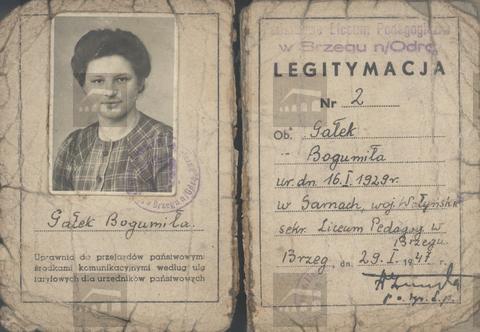 Gałek Bogumiła.
Uprawnia do przejazdów państwowym
środkami komunikacyjnymi według ulg
taryfowych dla urzędników państwowych
Liceum Pedagogiczne
w Brzegu n/Odrą
LEGITYMACJA
Nr 2
Ob. Gałek
Bogumiła
ur. dn. 16.I.1929r.
w Sarnach, woj. Wołyńskie
sekr. Liceum Pedagog. w
Brzegu.
Brzeg, dn. 29.I.1947 r.